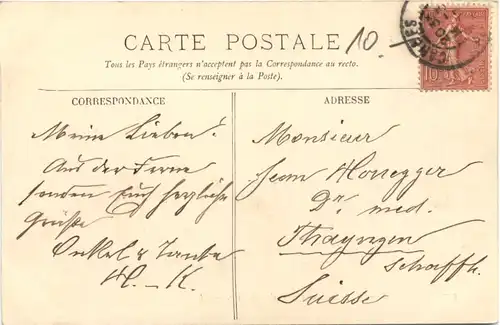 CARTE POSTALE
10.
Tous les Pays étrangers n'acceptent pas la Correspondance au recto.
(Se renseigner à la Poste).
CORRESPONDANCE
Meine Lieben!
Aus der Ferne
senden Euch herzliche
Grüße
Onkel & Tante
H.-K.
ADRESSE
Monsieur
Jean Honegger
Dr. med.
Thayngen
Schaffh.
Suisse
10